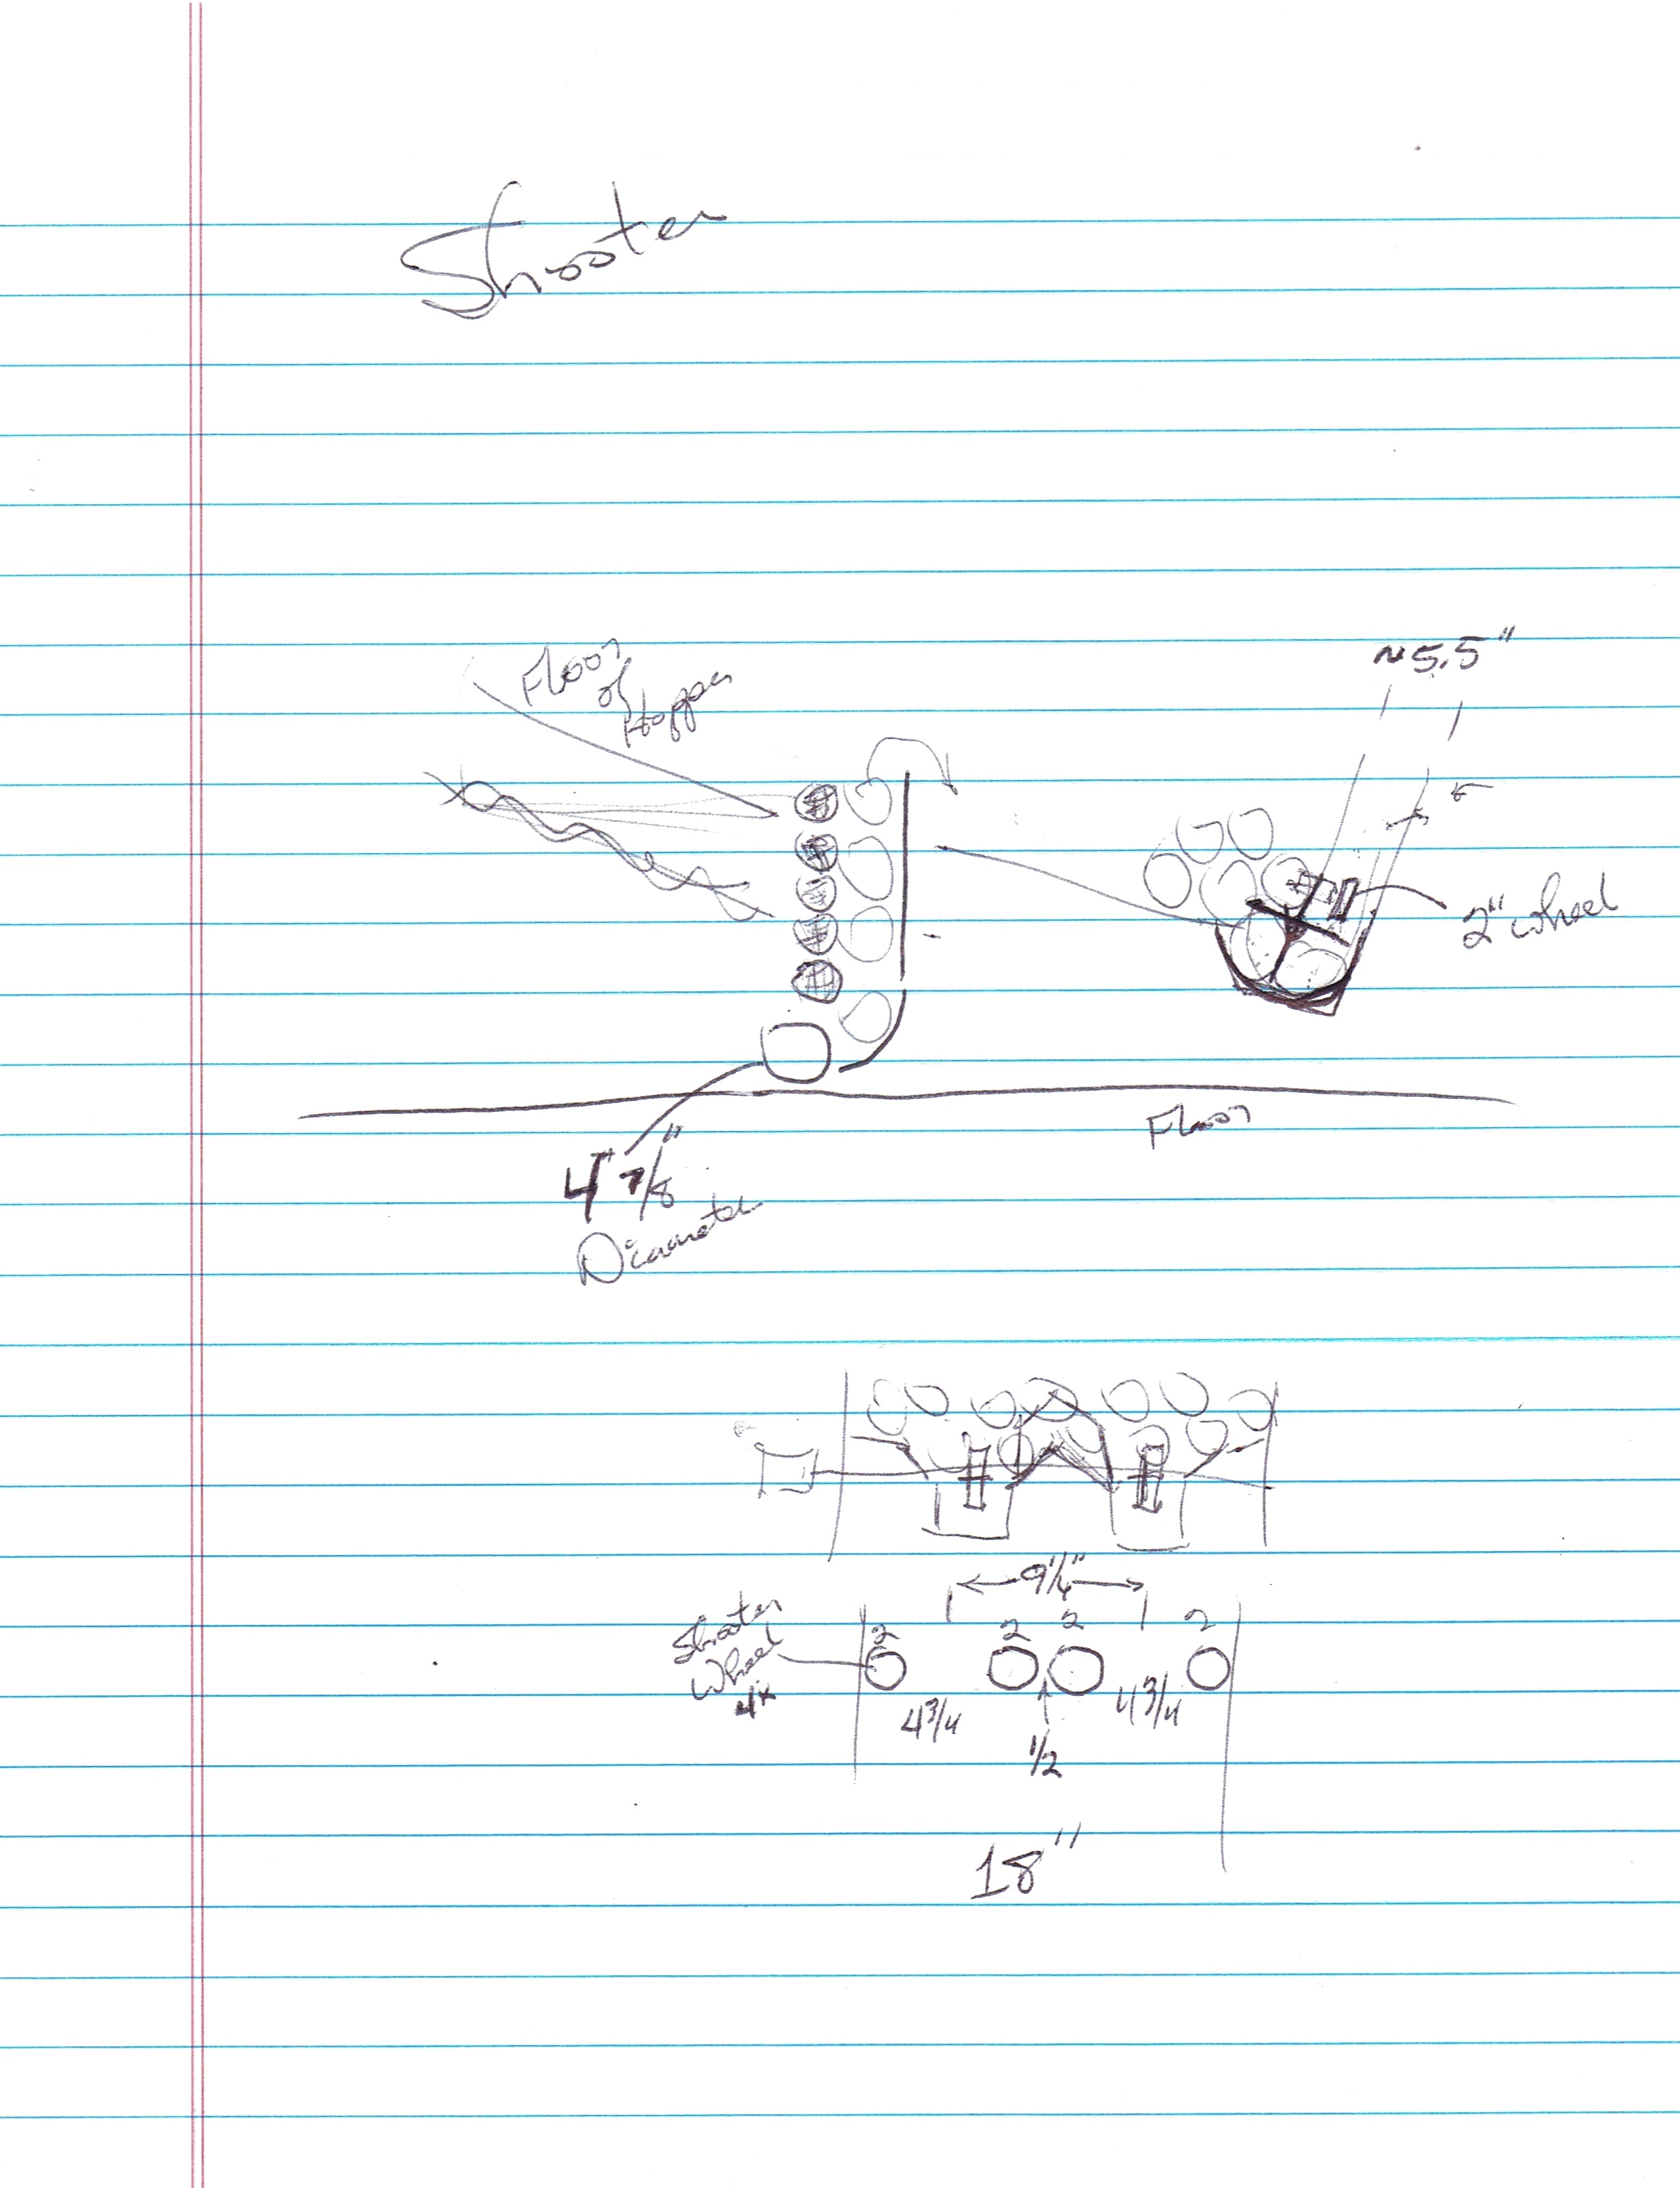 Shooter
~5.5"
Floor
of
Hopper
2" wheel
Floor
4 7/8"
Diameter
9 1/4"
Shooter
Wheel
4x
2
2
2
2
4 3/4
4 3/4
1/2
18"